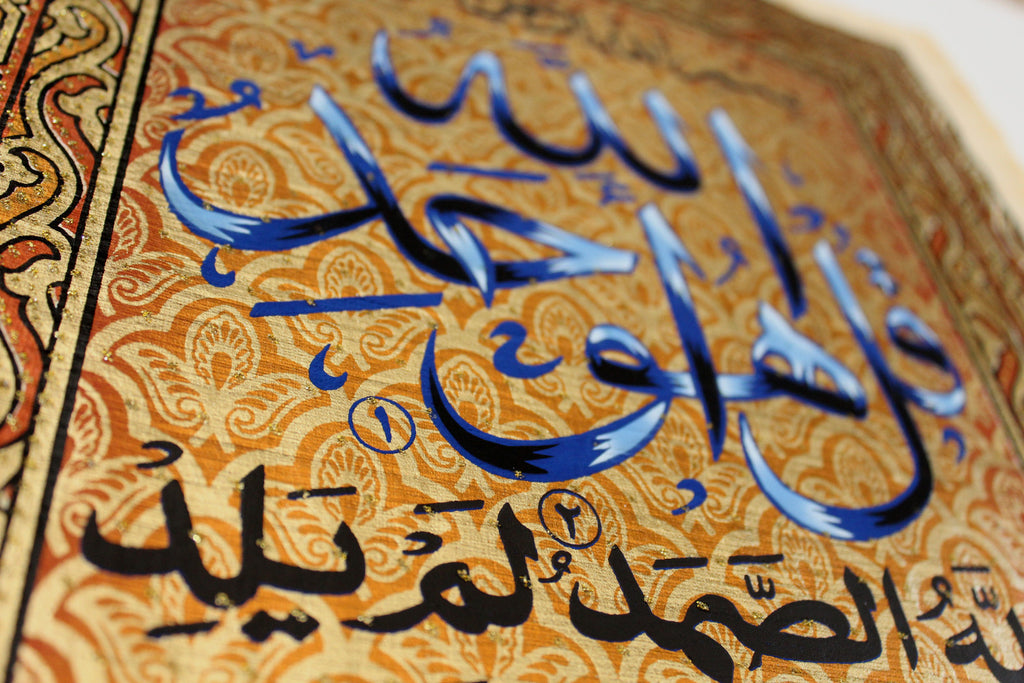 قُلْ هُوَ اللَّهُ أَحَدٌ ١
للَّهُ الصَّمَدُ ٢ لَمْ يَلِدْ